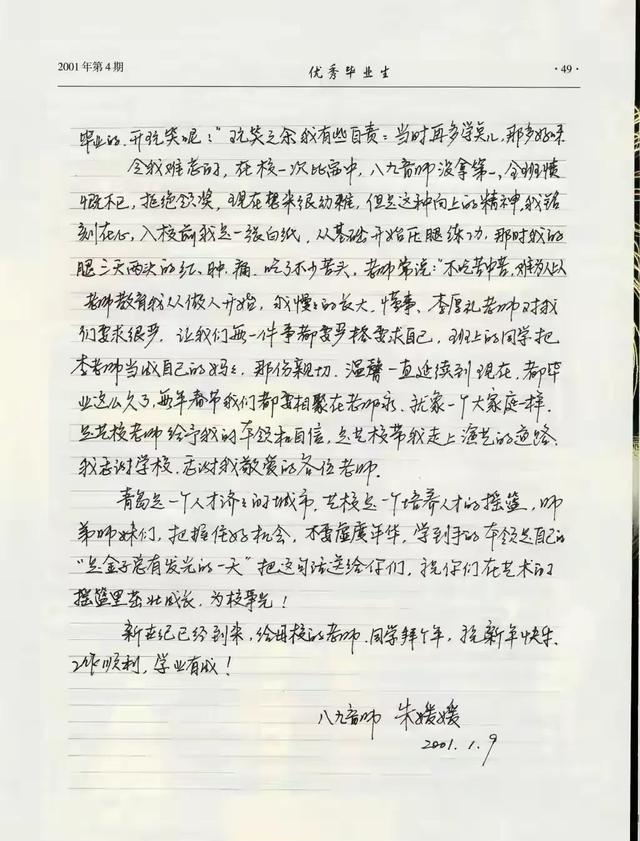 2001年第4期
优秀毕业生
·49·
毕业的,开玩笑呢:"玩笑之余我有些自责:当时再多学点儿,那多好呀
令我难忘的,在校一次比赛中,八九音师没拿第一,全班愤
慨不已,拒绝领奖,现在想来很幼稚,但是这种向上的精神,我铭
刻在心,入校前我是一张白纸,从基础开始压腿练功,那时我的
腿三天两头的红、肿、痛.吃了不少苦头,老师常说:"不吃苦中苦,难为人上人
老师教育我从做人开始,我慢々的长大,懂事、李厚礼老师对我
们要求很严,让我们每一件事都要严格要求自己,班上的同学把
李老师当成自己的妈々,那份亲切、温馨一直延续到现在,都毕
业这么久了,每年春节我们都要相聚在老师家.就象一个大家庭一样.
是艺校老师给予我的本领和自信,是艺校带我走上演艺的道路.
我感谢学校.感谢我敬爱的各位老师.
青岛是一个人才济々的城市.艺校是一个培养人才的摇篮,师
弟师妹们,把握住好机会,不要虚度年华,学到手的本领是自己的
"是金子总有发光的一天"把这句话送给你们,祝你们在艺术的
摇篮里茁壮成长,为校争光!
新世纪已经到来,给母校的老师.同学拜个年,祝新年快乐.
工作顺利,学业有成!
八九音师 朱媛媛
2001.1.9